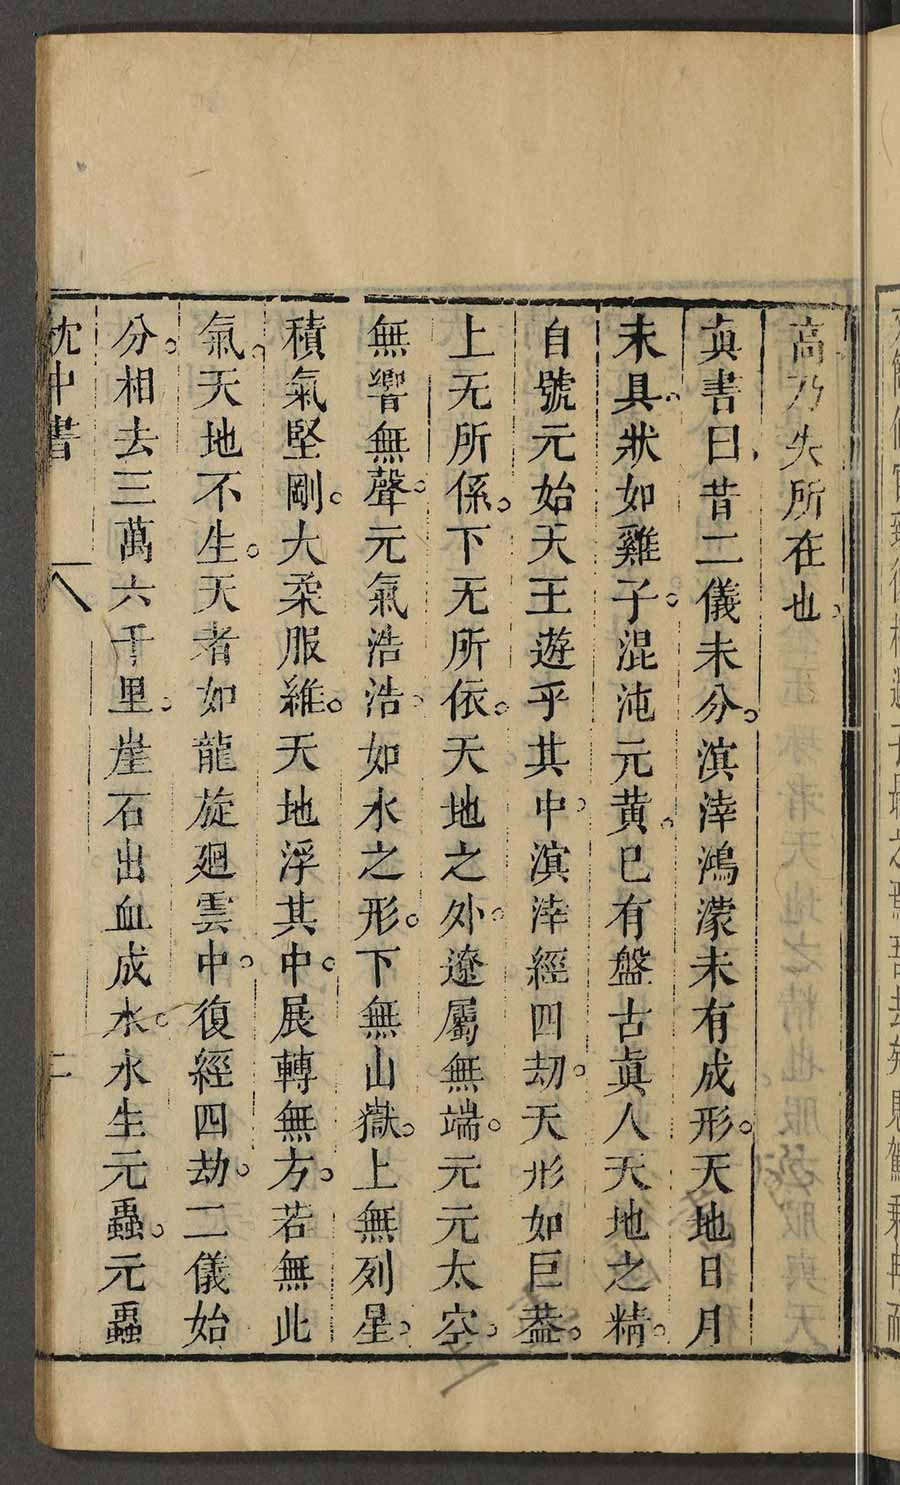 高乃失所在也。
眞書曰昔二儀未分。溟涬鴻濛未有成形。天地日月
未具。狀如雞子。混沌元黃。已有盤古眞人天地之精。
自號元始天王遊乎其中。溟涬經四劫。天形如巨蓋。
上无所係。下无所依。天地之外。遼屬無端。元元太空。
無響無聲。元氣浩浩。如水之形。下無山嶽。上無列星。
積氣堅剛。大柔服維。天地浮其中。展轉無方。若無此
氣。天地不生。天者如龍旋廻雲中。復經四劫。二儀始
分。相去三萬六千里。崖石出血成水。水生元蟲。元蟲
枕中書 八 二